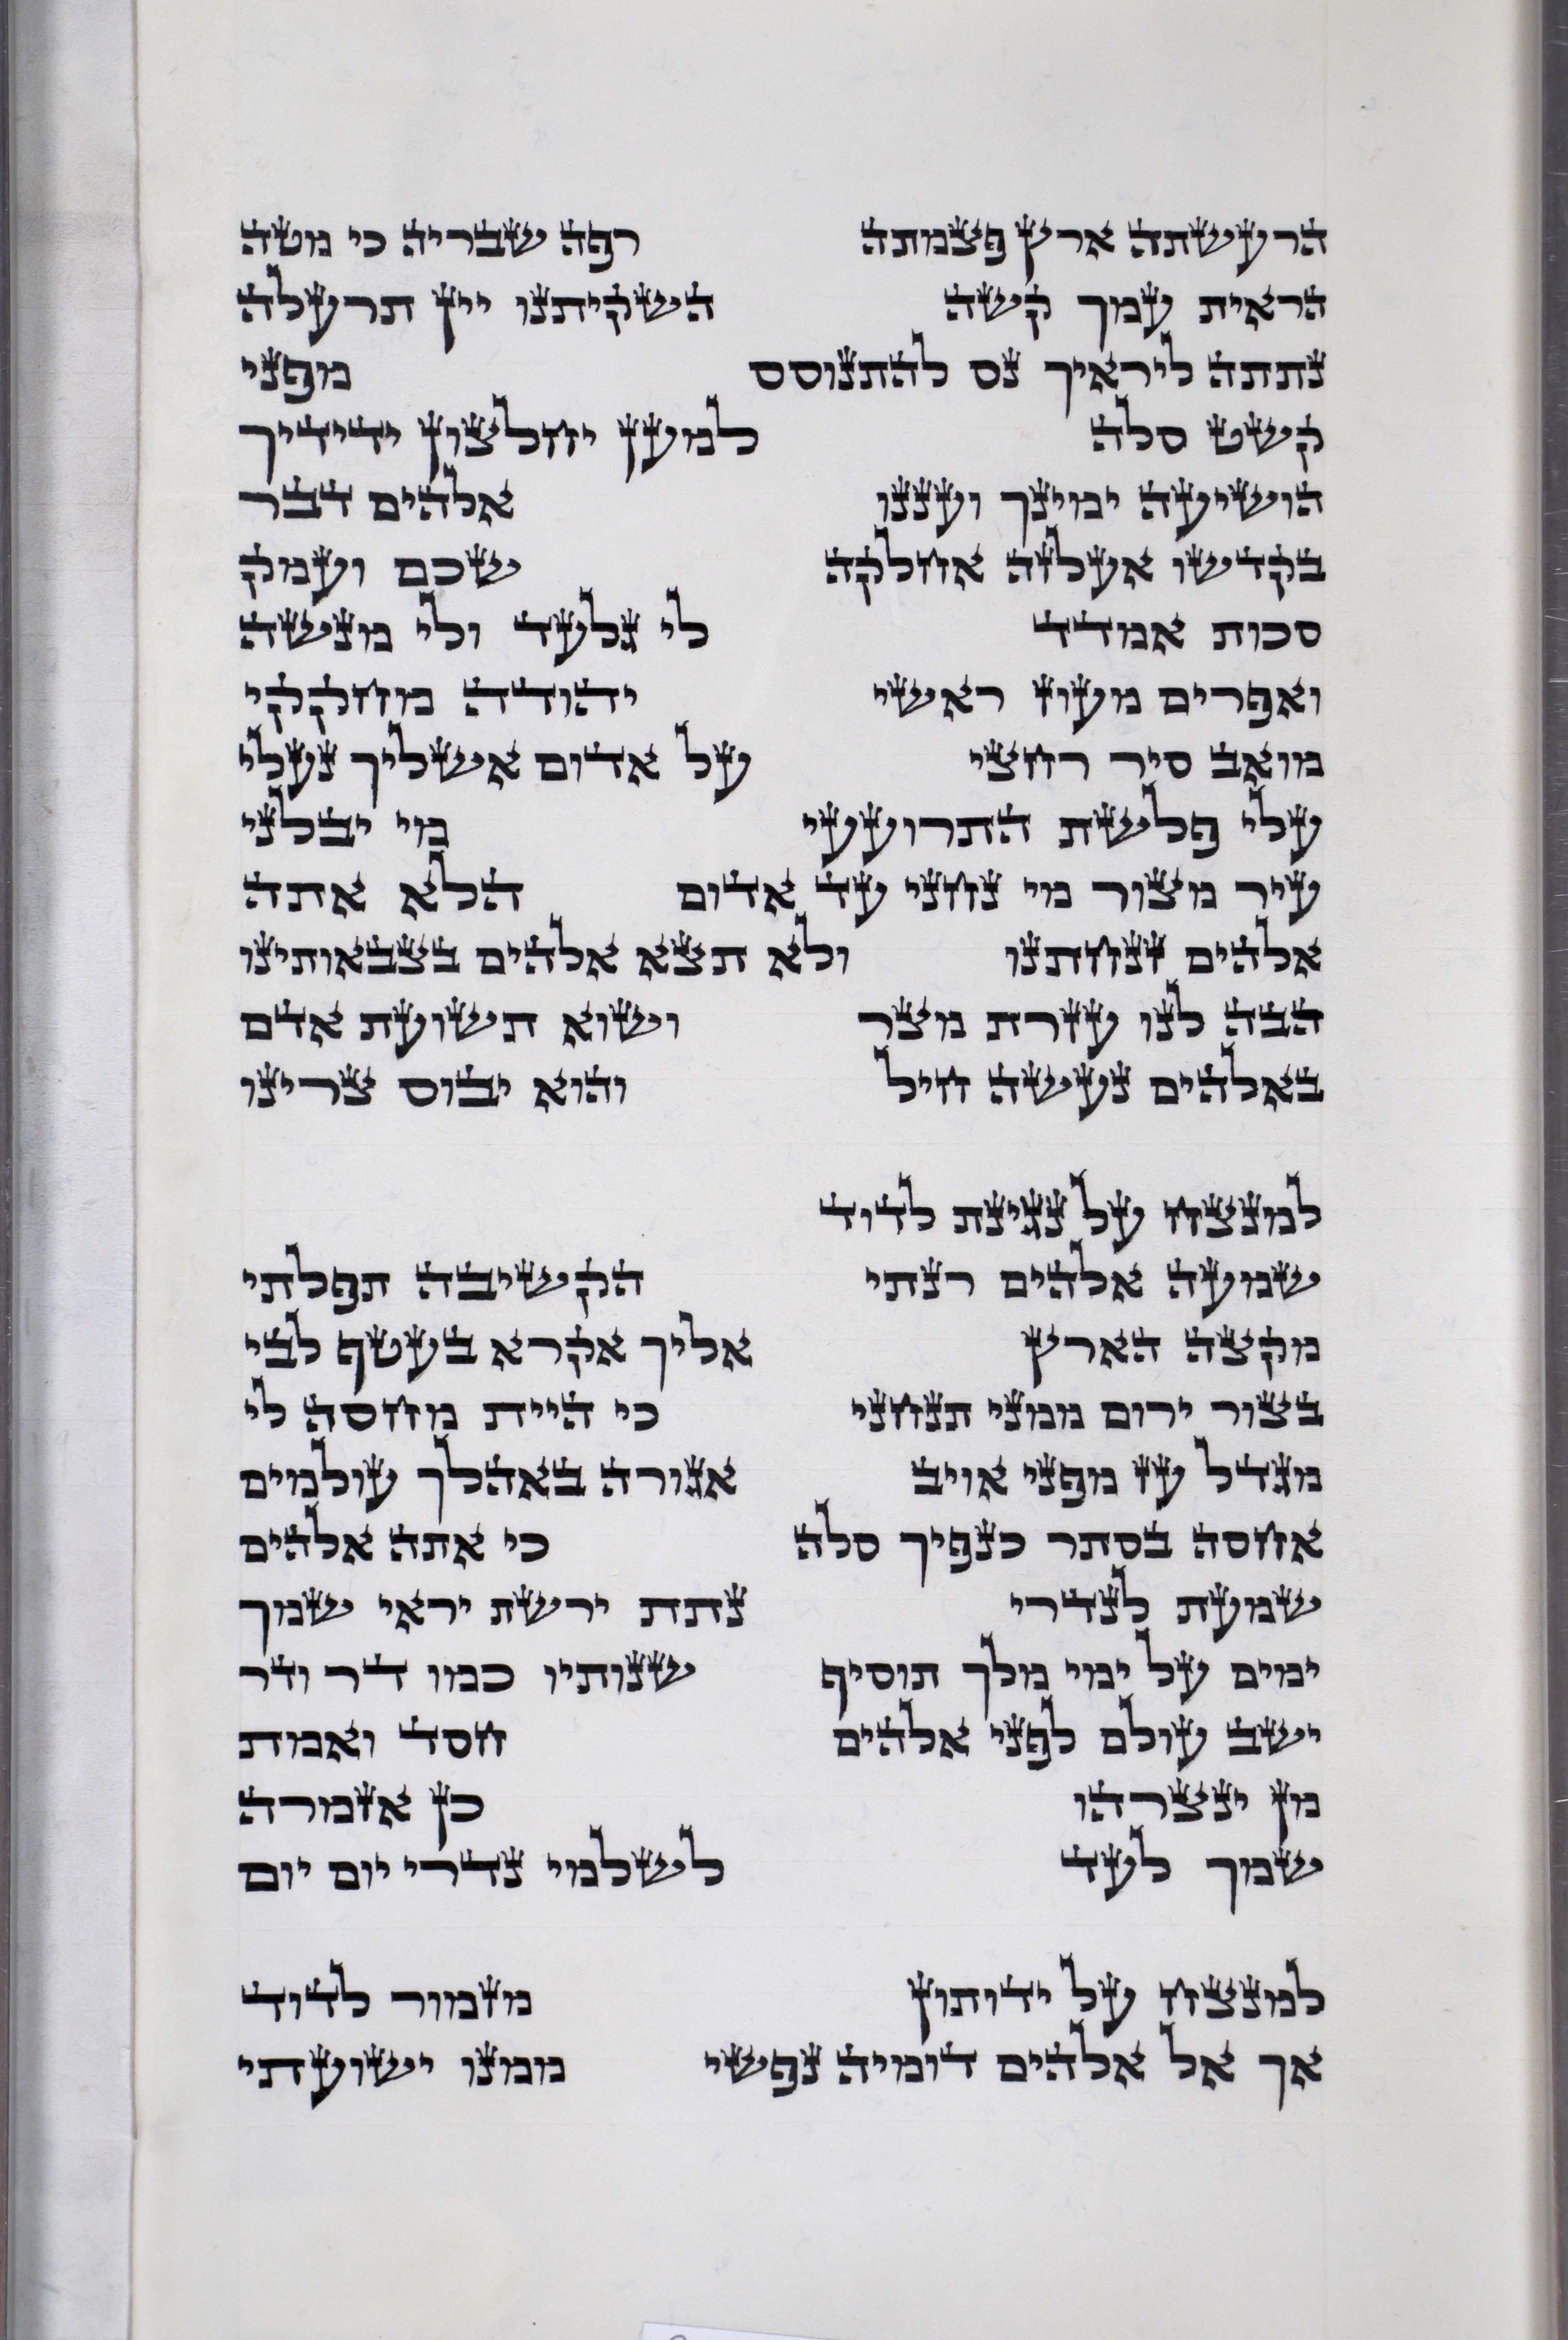 הרעשתה ארץ פצמתה רפה שבריה כי מטה
הראית עמך קשה השקיתנו יין תרעלה
נתתה ליראיך נס להתנוסס מפני
קשט סלה למען יחלצון ידידיך
הושיעה ימינך ועננו אלהים דבר
בקדשו אעלזה אחלקה שכם ועמק
סכות אמדד לי גלעד ולי מנשה
ואפרים מעוז ראשי יהודה מחקקי
מואב סיר רחצי על אדום אשליך נעלי
עלי פלשת התרועעי מי יבלני
עיר מצור מי נחני עד אדום הלא אתה
אלהים זנחתנו ולא תצא אלהים בצבאותינו
הבה לנו עזרת מצר ושוא תשועת אדם
באלהים נעשה חיל והוא יבוס צרינו
למנצח על נגינת לדוד
שמעה אלהים רנתי הקשיבה תפלתי
מקצה הארץ אליך אקרא בעטף לבי
בצור ירום ממני תנחני כי היית מחסה לי
מגדל עז מפני אויב אגורה באהלך עולמים
אחסה בסתר כנפיך סלה כי אתה אלהים
שמעת לנדרי נתת ירשת יראי שמך
ימים על ימי מלך תוסיף שנותיו כמו דר ודר
ישב עולם לפני אלהים חסד ואמת
מן ינצרהו כן אזמרה
שמך לעד לשלמי נדרי יום יום
למנצח על ידותון מזמור לדוד
אך אל אלהים דומיה נפשי ממנו ישועתי